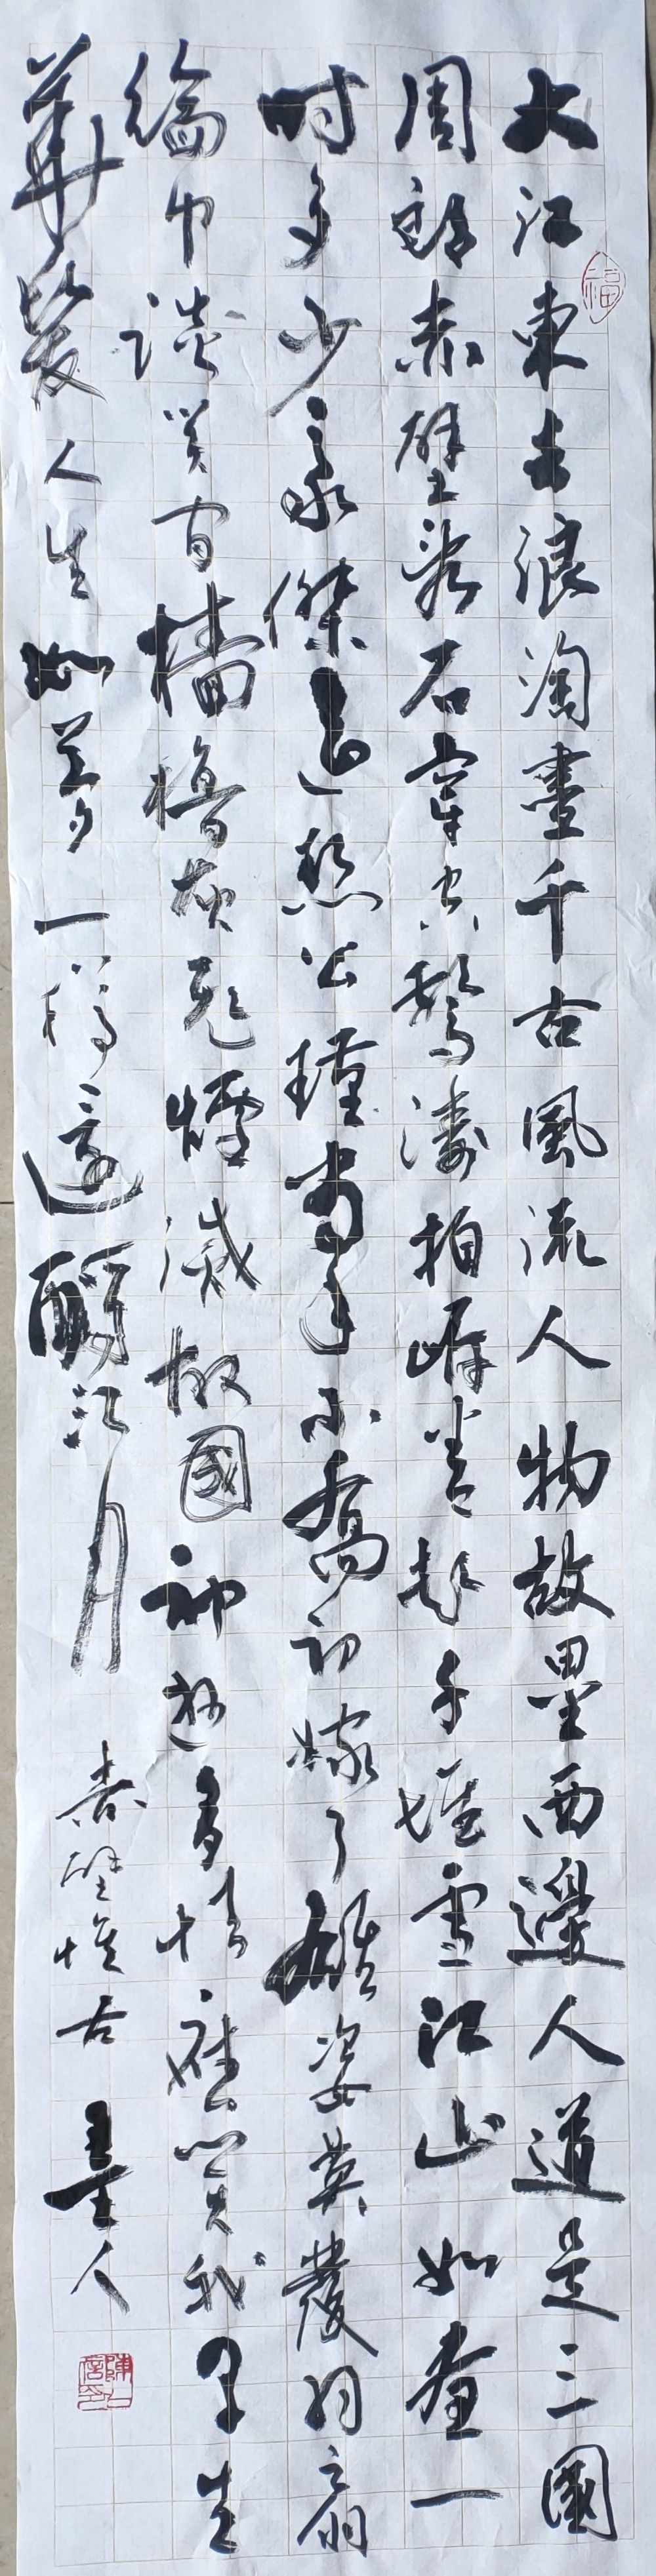 大江東去浪淘盡千古風流人物故壘西邊人道是三國
周郎赤壁亂石穿空驚濤拍岸卷起千堆雪江山如畫一
時多少豪傑遙想公瑾當年小喬初嫁了雄姿英發羽扇
綸巾談笑間檣櫓灰飛煙滅故國神遊多情應笑我早生
華髮人生如夢一樽還酹江月
赤壁懷古 人
福